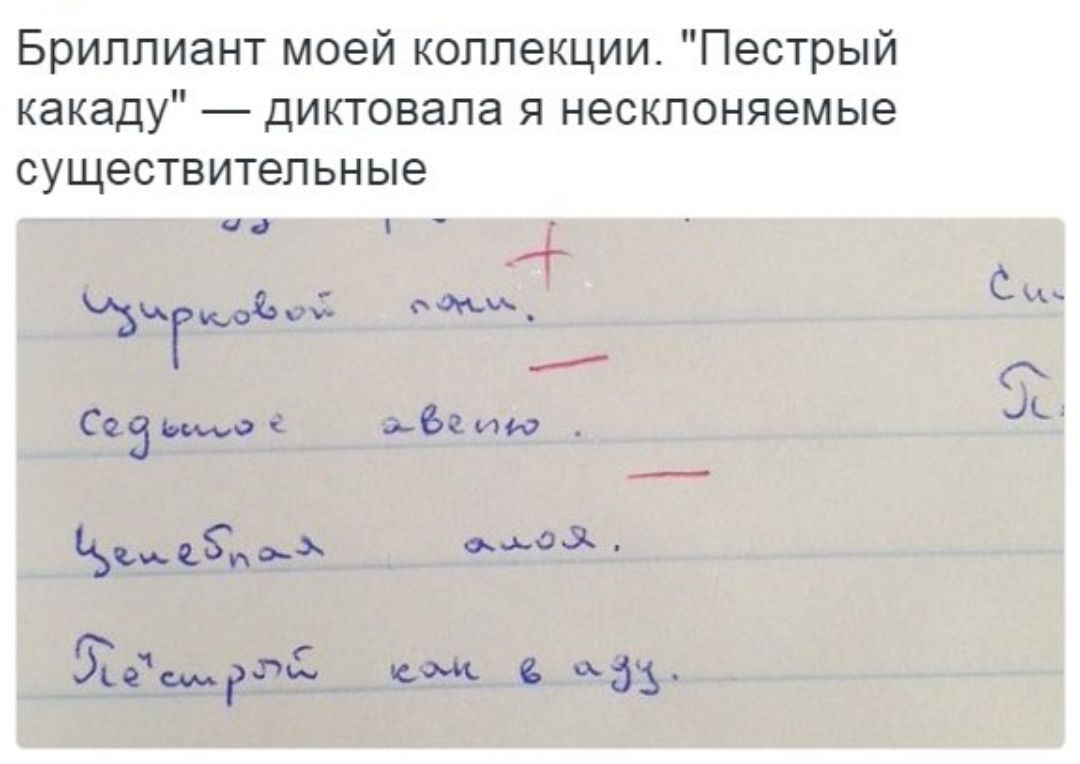 Бриллиант моей коллекции. "Пестрый
какаду" — диктовала я несклоняемые
существительные
+
Цирковой пони.
Си
—
Седьмое авеню.
П
—
Целебная алоя.
Пёстрый как в аду.